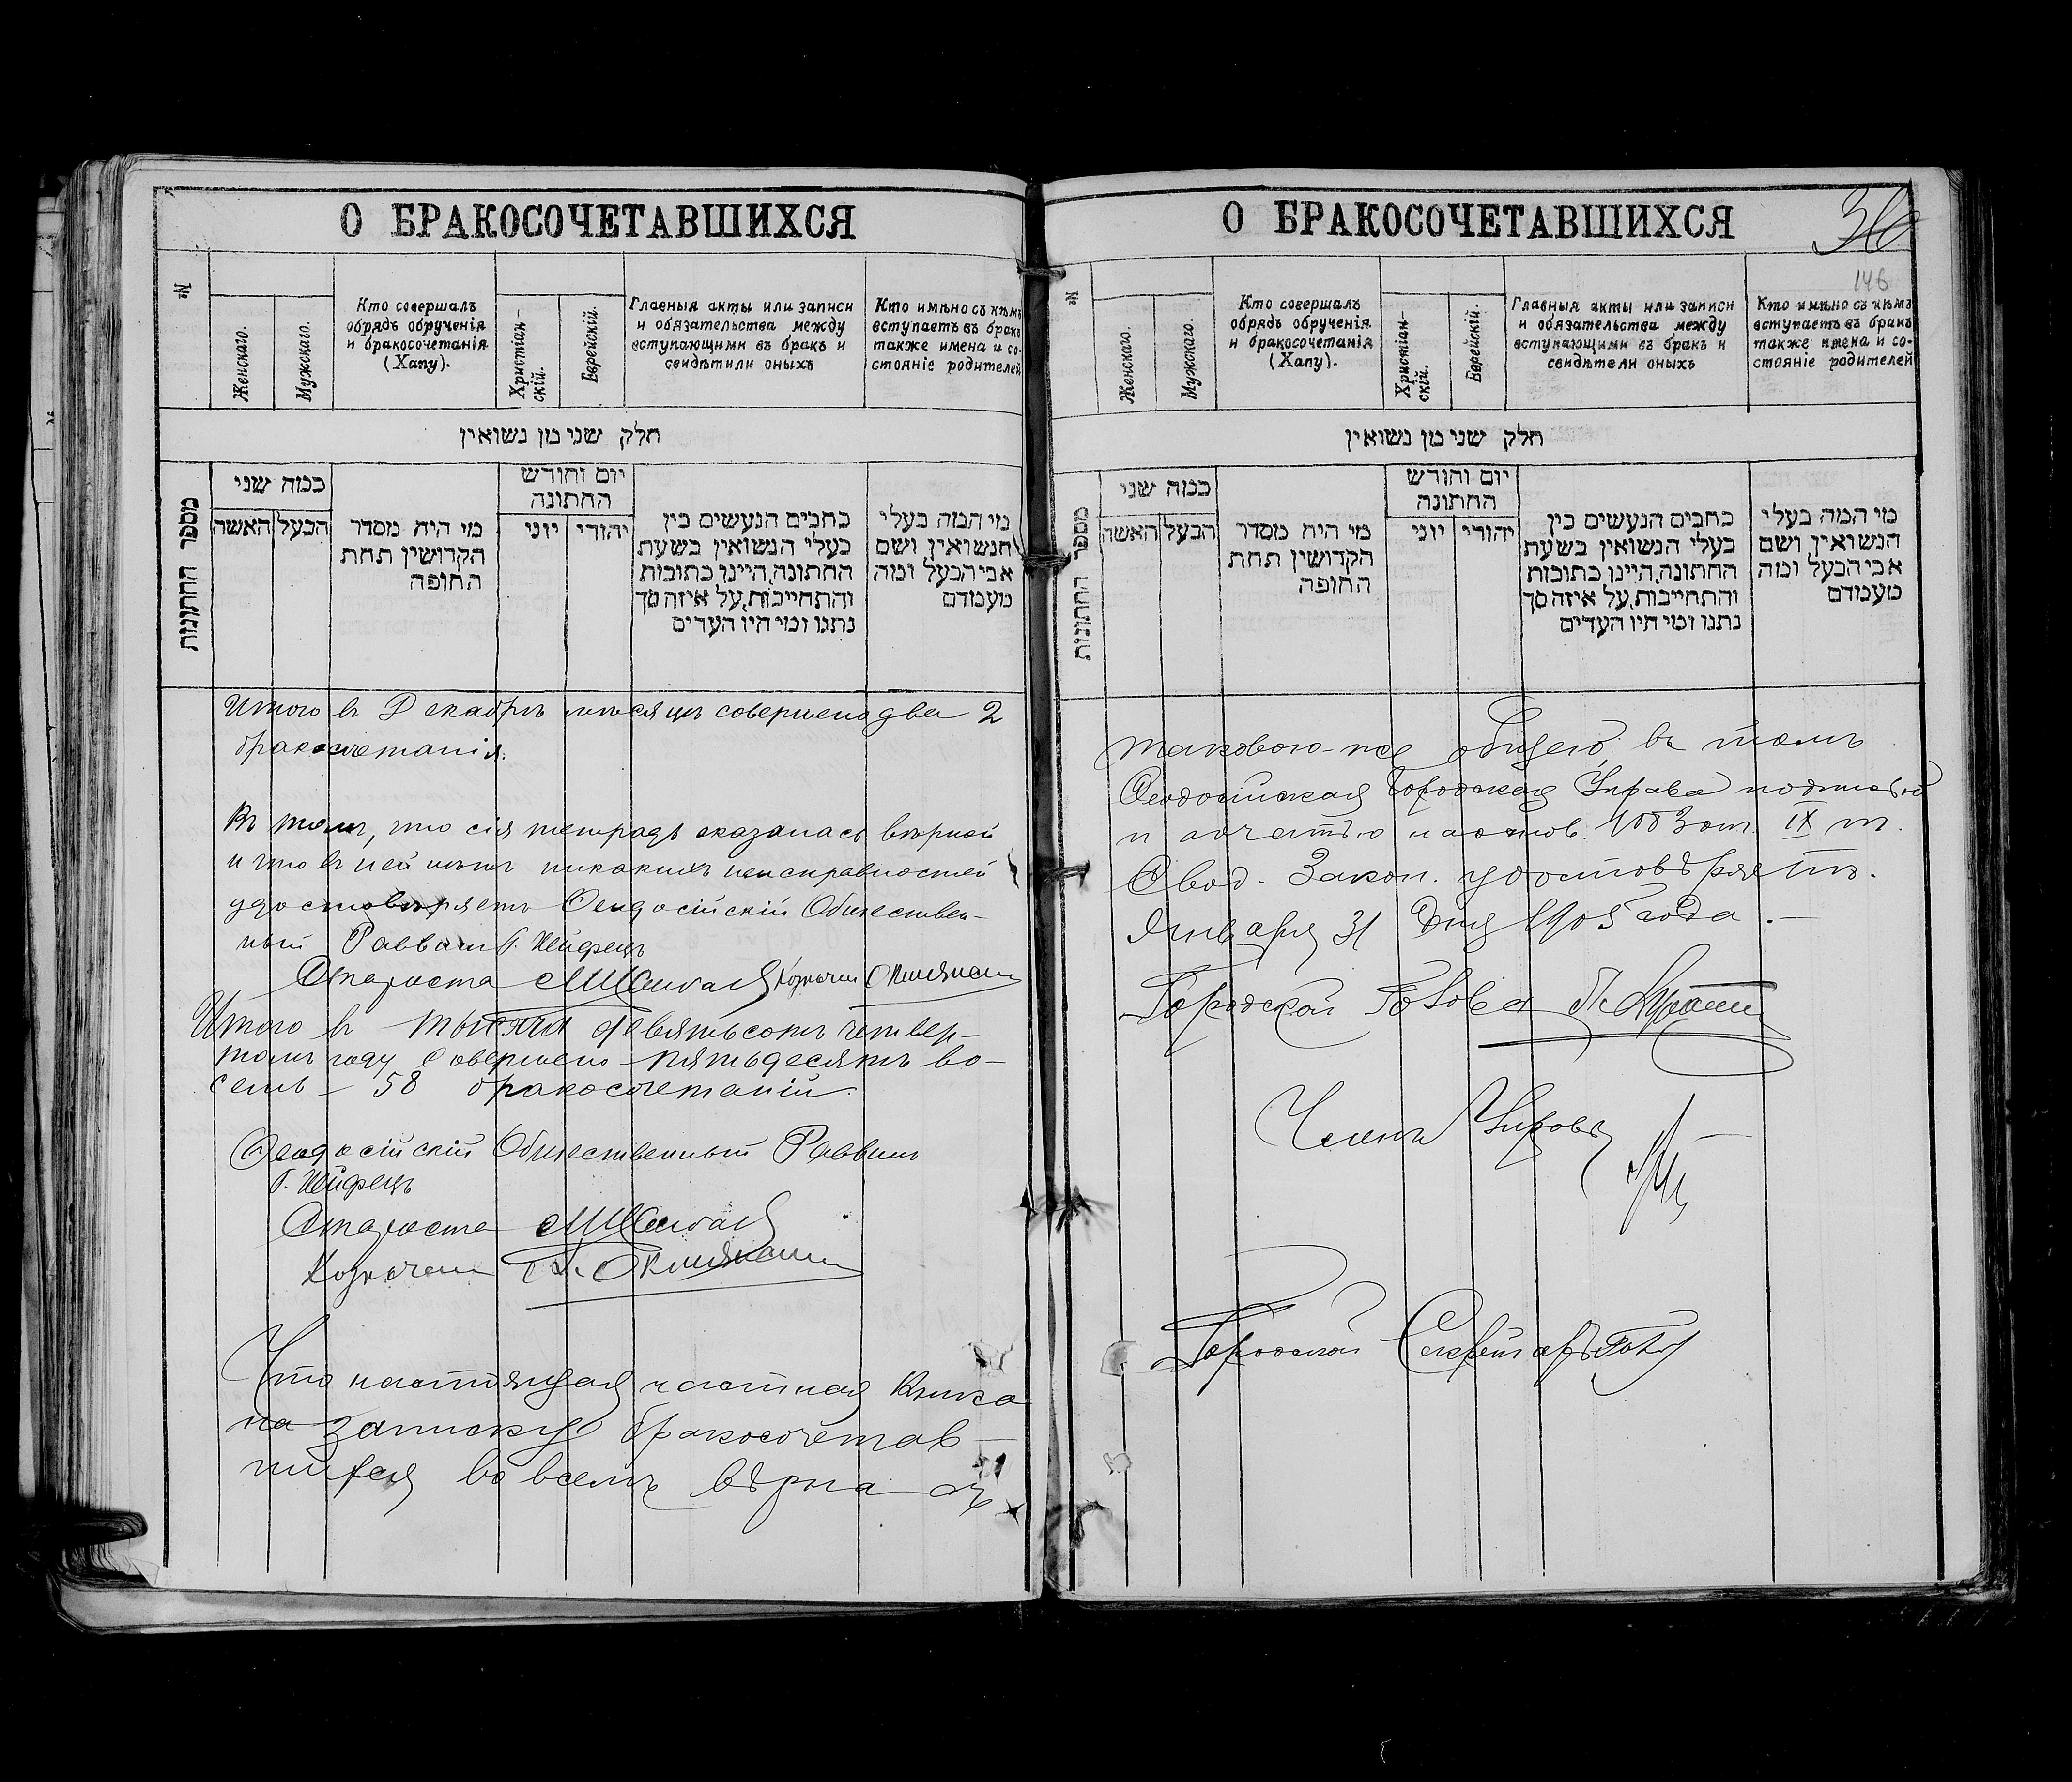 О БРАКОСОЧЕТАВШИХСЯ
№
Женскаго.
Мужскаго.
Кто совершалъ
обрядъ обрученія
и бракосочетанія
(Хапу).
Христіан-
скій.
Еврейскій.
Главныя акты или записи
и обязательства между
вступающими въ бракъ и
свидѣтили оныхъ
Кто имѣно съ кѣмъ
вступаетъ въ бракъ
также имена и со-
стояніе родителей
חלק שני מן נשואין
מספר החתונות
כמה שני
האשה
הבעל
מי היה מסדר
הקדושין תחת
החופה
יום וחודש
החתונה
יוני
יהודי
כתבים הנעשים בין
בעלי הנשואין בשעת
החתונה, היינו כתובות
והתחייבות, על איזה סך
נתנו ומי היו העדים
מי המה בעלי
הנשואין ושם
אבי הבעל ומה
מעמדם
Итого въ Декабрѣ мѣсяцѣ совершено два 2
бракосочетанія.
Въ томъ, что сія тетрадь оказалась вѣрной
и что въ ней нѣтъ никакихъ неисправностей
удостовѣряетъ Ѳеодосійскій Обществен-
ный Раввинъ Г. Хейфецъ
Староста Казначей
Итого въ тысяча девятьсотъ четвер-
томъ году совершено пятьдесятъ во-
семь – 58 бракосочетаній.
Ѳеодосійскій Общественный Раввинъ
Г. Хейфецъ
Староста
Казначей
Что настоящая частная книга
на записку бракосочетав-
шихся во всемъ вѣрна съ
О БРАКОСОЧЕТАВШИХСЯ
36
146
№
Женскаго.
Мужскаго.
Кто совершалъ
обрядъ обрученія
и бракосочетанія
(Хапу).
Христіан-
скій.
Еврейскій.
Главныя акты или записи
и обязательства между
вступающими въ бракъ и
свидѣтели оныхъ
Кто имѣно съ кѣмъ
вступаетъ въ бракъ
также имена и со-
стояніе родителей
חלק שני מן נשואין
מספר החתונות
כמה שני
האשה
הבעל
מי היה מסדר
הקדושין תחת
החופה
יום וחודש
החתונה
יוני
יהודי
כתבים הנעשים בין
בעלי הנשואין בשעת
החתונה, היינו כתובות
והתחייבות, על איזה סך
נתנו ומי היו העדים
מי המה בעלי
הנשואין ושם
אבי הבעל ומה
מעמדם
таковою-же общею, въ томъ
Ѳеодосійская Городская Управа подписью
и печатью IX т.
Свод. Закон. удостовѣряетъ.
Января 31 дня 1905 года.
Городской Голова
Членъ Управы
Городской Секретарь